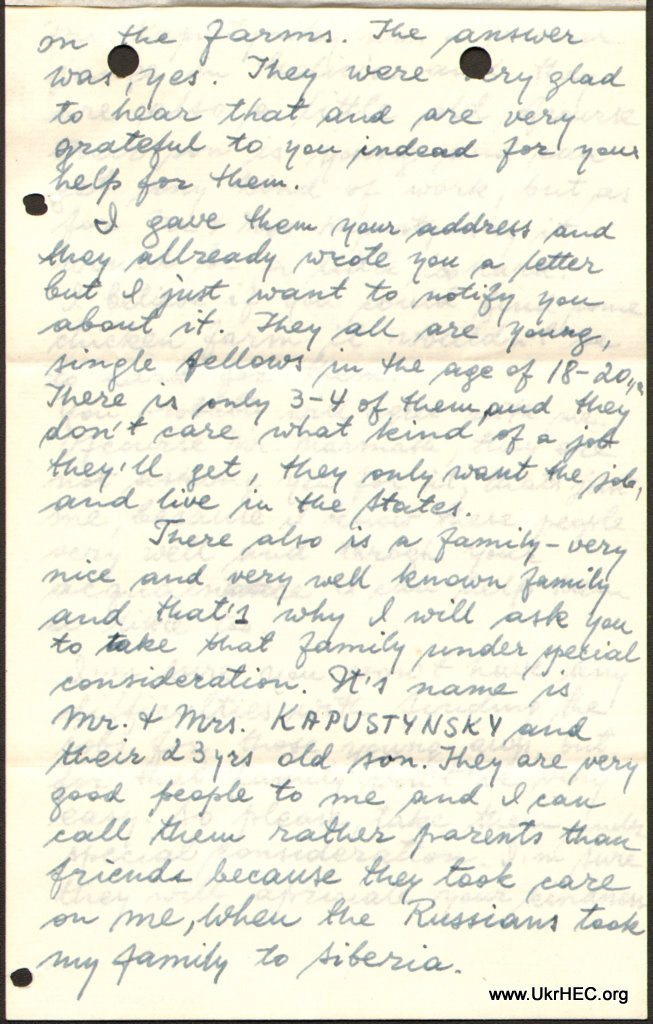 on the farms. The answer
was, yes. They were very glad
to hear that and are very
grateful to you indead for your
help for them.
I gave them your address and
they allready wrote you a letter
but I just want to notify you
about it. They all are young,
single fellows in the age of 18-20.
There is only 3-4 of them, and they
don't care what kind of a job
they'll get, they only want the job,
and live in the States.
There also is a family - very
nice and very well known family
and that's why I will ask you
to take that family under special
consideration. It's name is
Mr. & Mrs. KAPUSTYNSKY and
their 23 yrs old son. They are very
good people to me and I can
call them rather parents than
friends because they took care
on me, when the Russians took
my family to Siberia.
www.UkrHEC.org